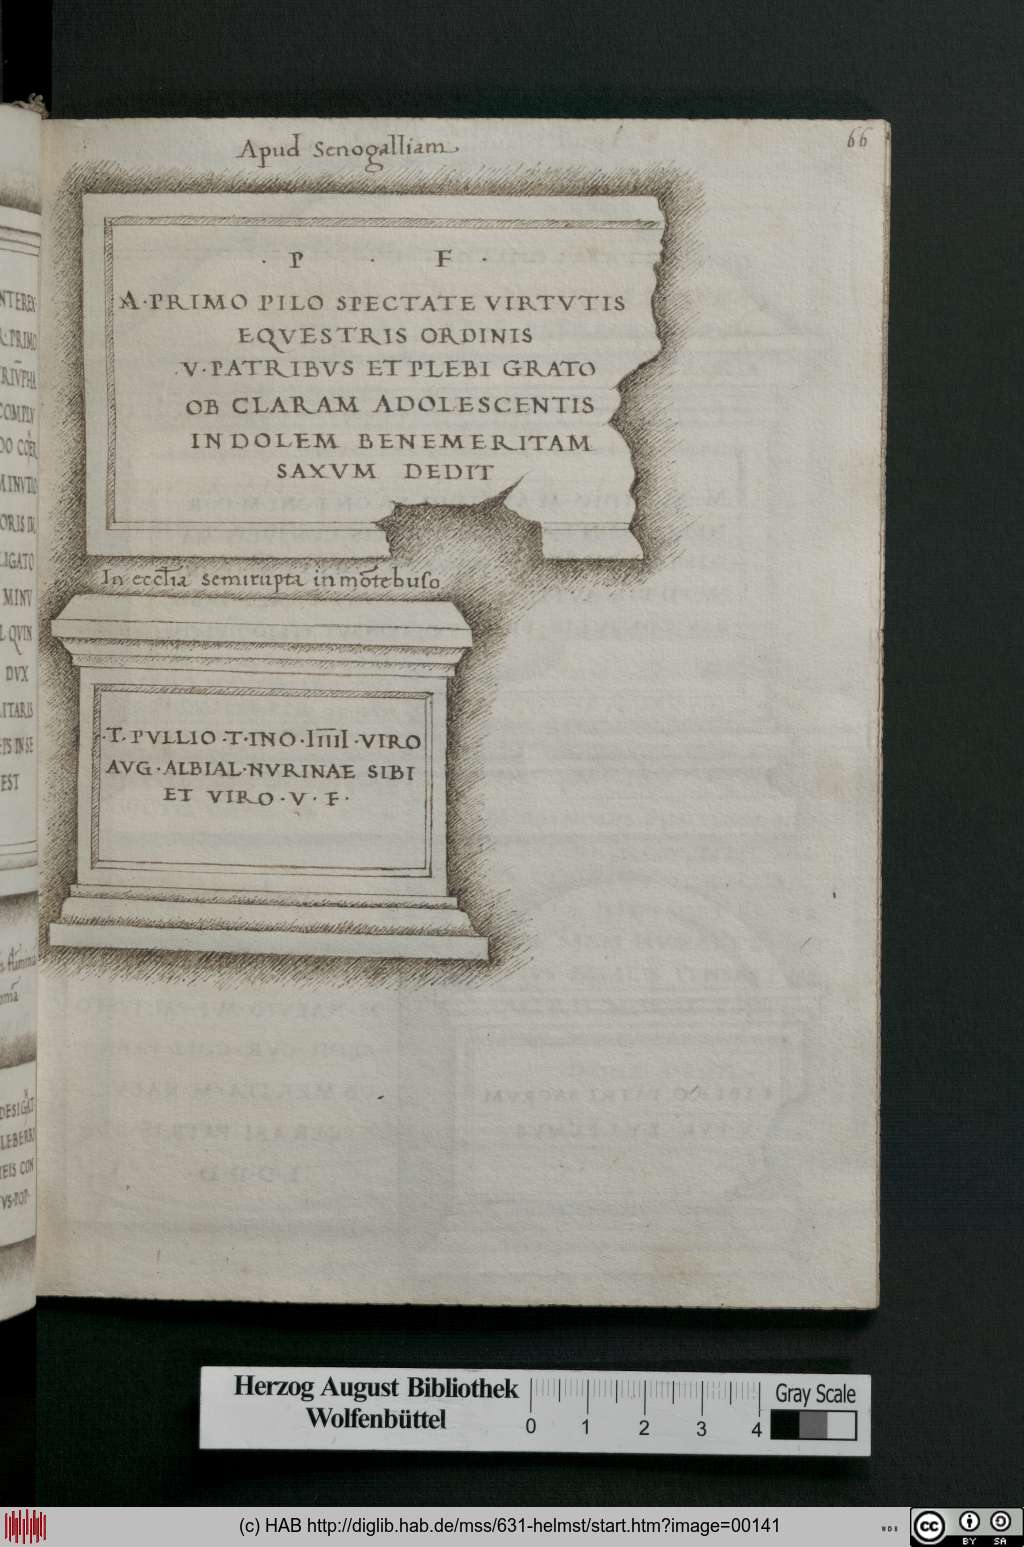 66
Apud Senogalliam
· P · F ·
A·PRIMO PILO SPECTATE VIRTVTIS
EQVESTRIS ORDINIS
.V·PATRIBVS ET PLEBI GRATO
OB CLARAM ADOLESCENTIS
INDOLEM BENEMERITAM
SAXVM DEDIT
In eccl̄ia semirupta in mōtebuso
·T·PVLLIO·T·INO·IIIIII·VIRO
AVG·ALBIAL·NVRINAE SIBI
ET VIRO·V·F·
NTEREX
PRIMO
RIVPHA
COMPLV
MINVTIO
ORIS IN
LIGATO
MINV
L QVIN
DVX
LITARIS
EST
DESIGAT
LEBERRI
IEIS CON
VS·POP·
Herzog August Bibliothek
Wolfenbüttel
0 1 2 3 4
Gray Scale
(c) HAB http://diglib.hab.de/mss/631-helmst/start.htm?image=00141
WDB
cc BY SA